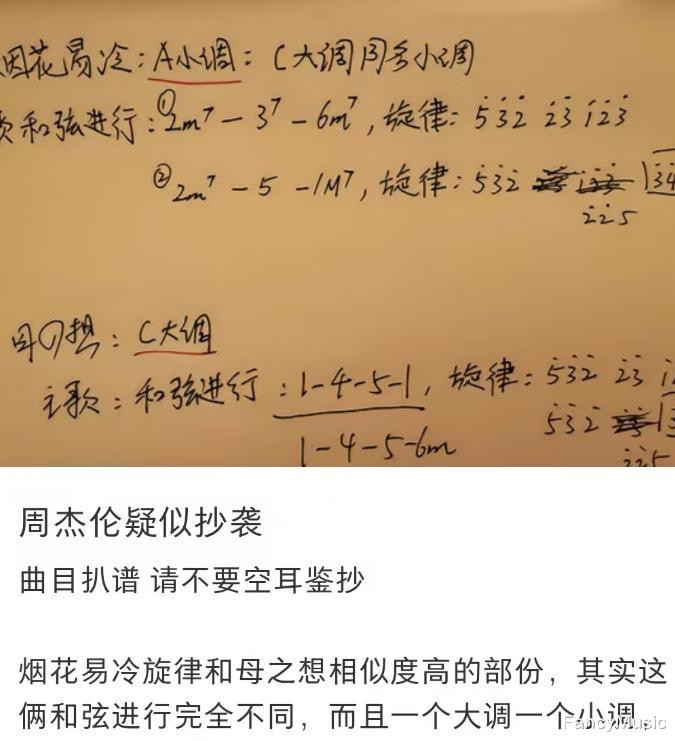 烟花易冷：A小调：C大调同名小调
歌和弦进行：①2m⁷－3⁷－6m⁷，旋律：5̇3̇2̇ 2̇3̇ 1̇2̇3̇
②2m⁷－5－1M⁷，旋律：5̇3̇2̇ 1̇3̇4̇
2̇2̇5
母の想：C大调
主歌：和弦进行：1－4－5－1，旋律：5̇3̇2̇ 2̇3̇ 1̇
1－4－5－6m 5̇3̇2̇ 1̇3̇
2̇2̇5
周杰伦疑似抄袭
曲目扒谱 请不要空耳鉴抄
烟花易冷旋律和母之想相似度高的部份，其实这
俩和弦进行完全不同，而且一个大调一个小调，
FancyMusic